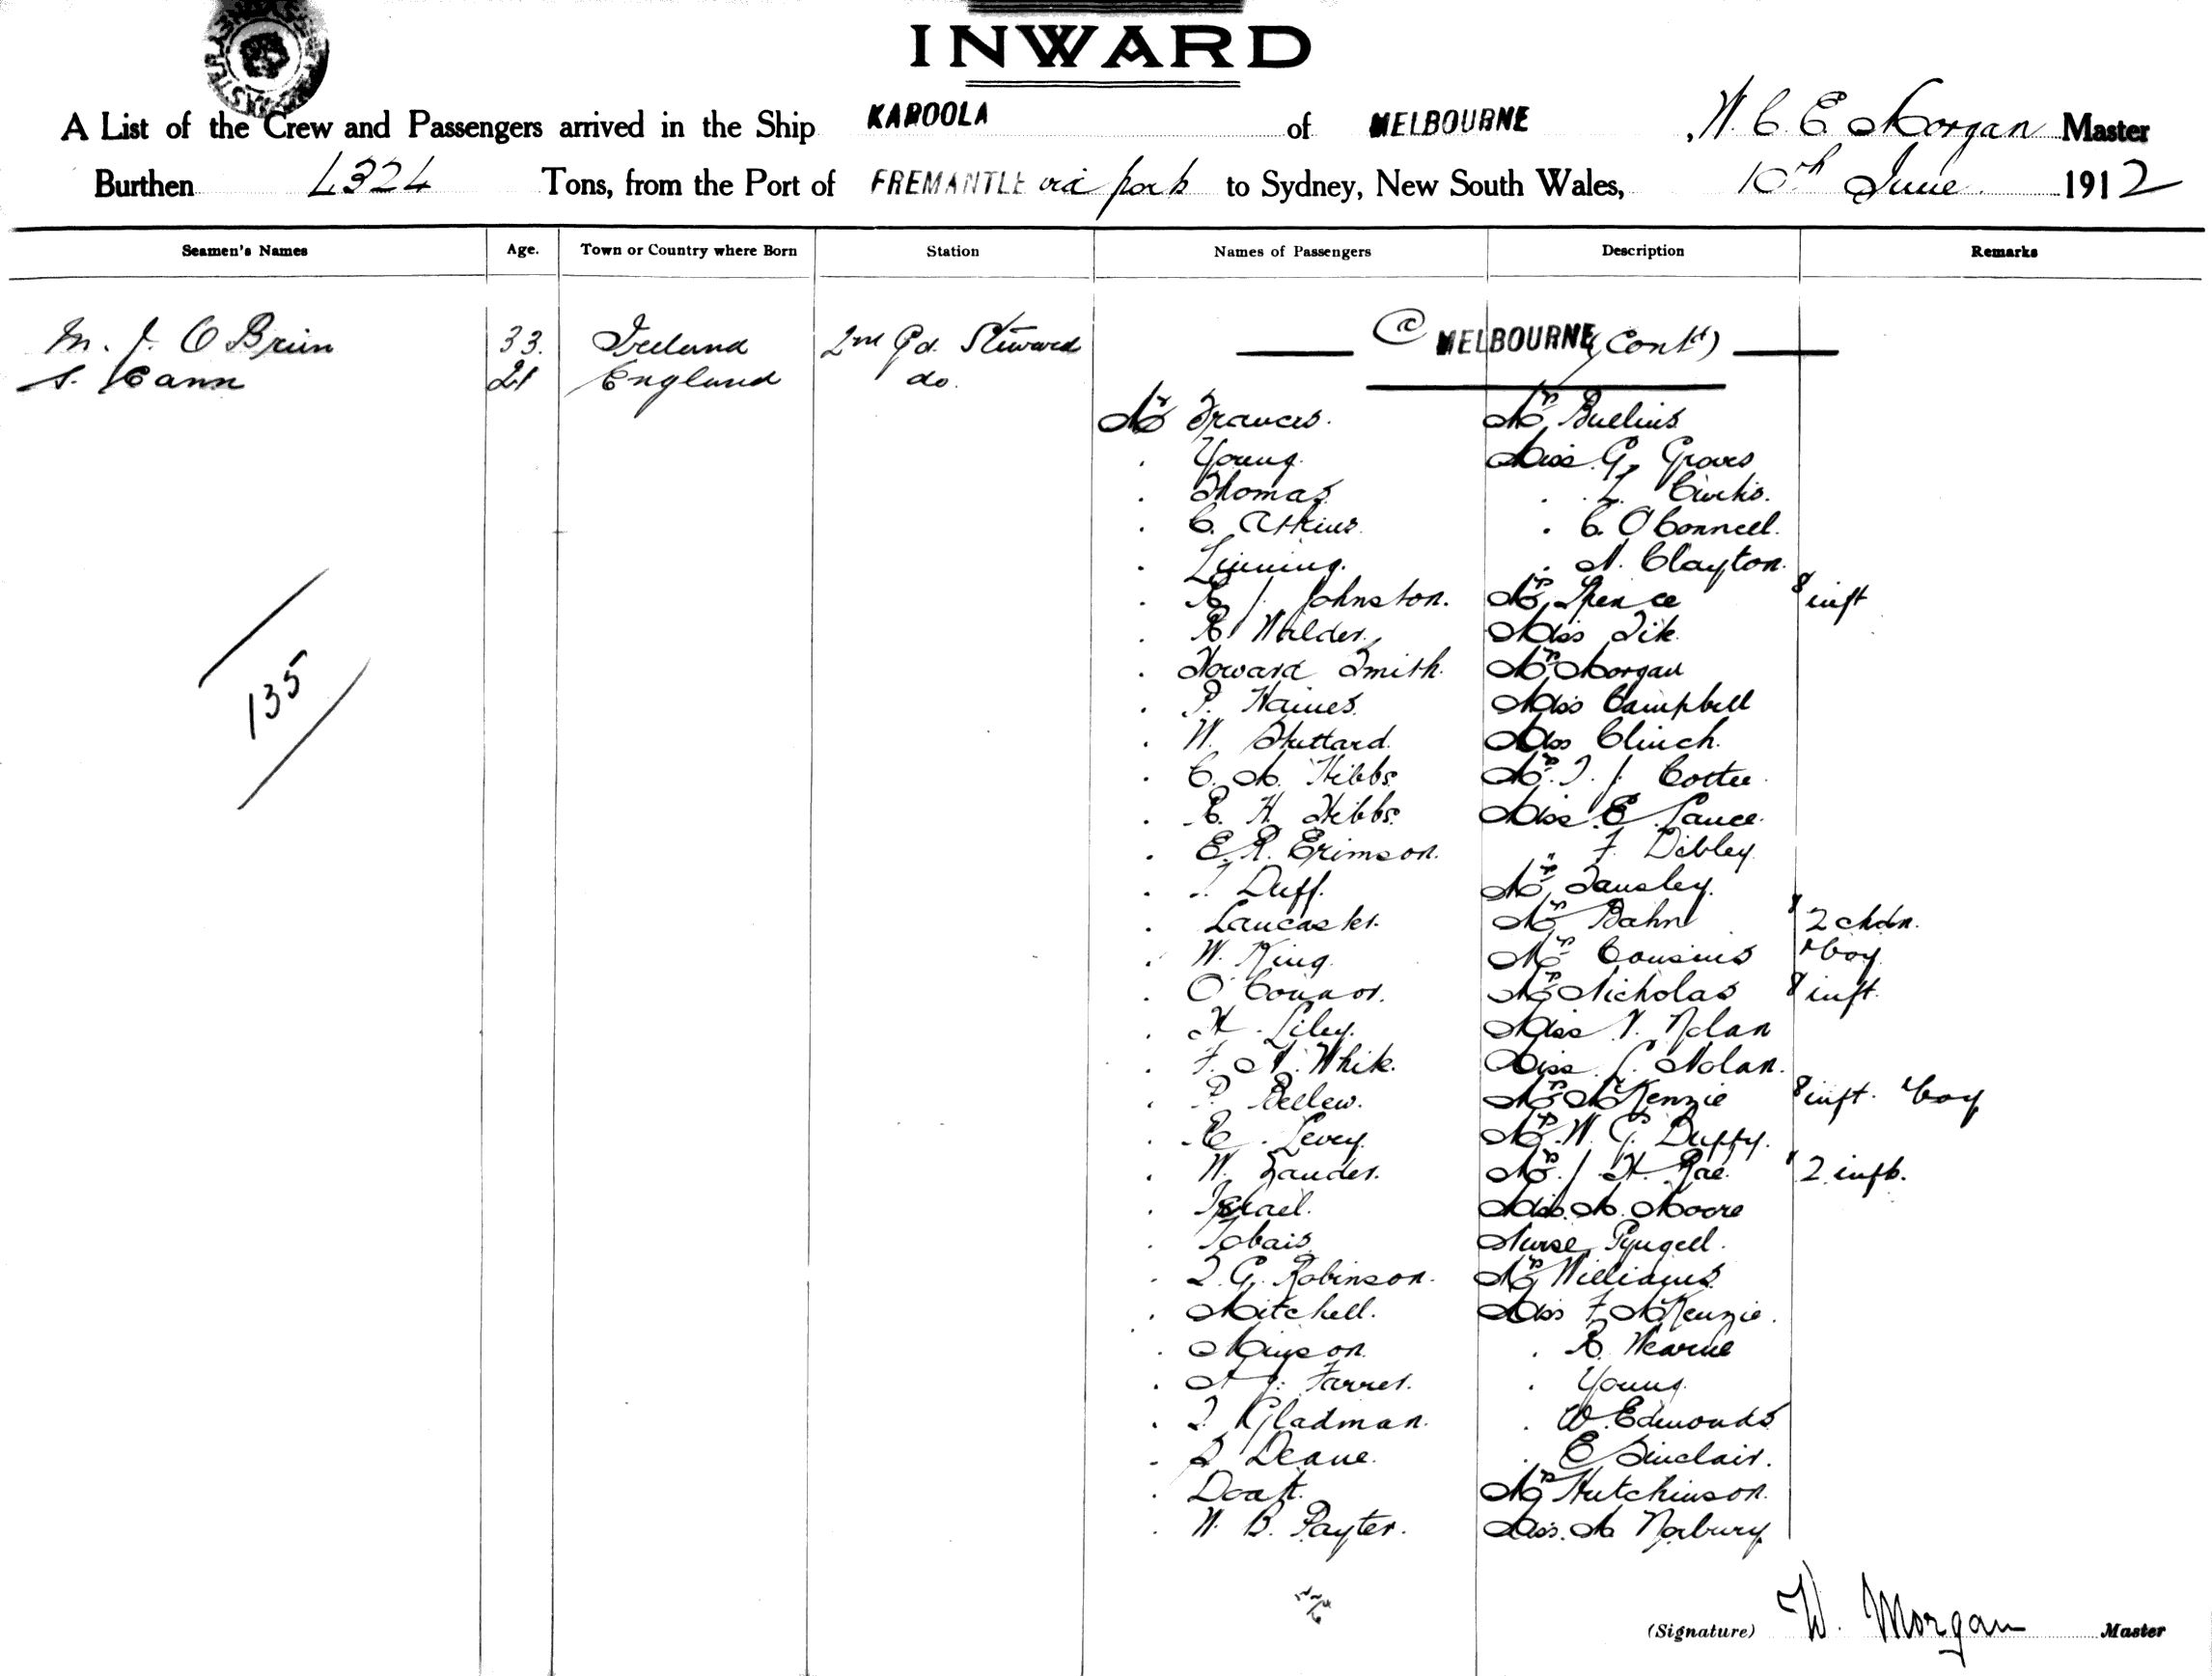 INWARD
A List of the Crew and Passengers arrived in the Ship KAROOLA of MELBOURNE, W. C. E. Morgan Master
Burthen 4324 Tons, from the Port of FREMANTLE via ports to Sydney, New South Wales, 10th June 1912
Seamen's Names Age. Town or Country where Born Station Names of Passengers Description Remarks
M. J. O'Brien 33. Ireland 2nd Gd. Steward @ MELBOURNE (Contd)
S. Cann 21 England do.
Mr Frances. Mrs
. Young. Miss G. Groves
. Thomas. . L. Curtis.
. C. Atkins. . C. O'Connell.
. Linning. . N. Clayton.
. R J. Johnston. Mrs Spence & inft
. R. Walder. Miss
. Howard Smith. Mrs Morgan
. P. Haines. Miss Campbell
. W. Shuttard. Miss Clinch.
. C. M. Hibbs. Mrs. T. J. Cottee.
. R. H. Hibbs. Miss E. Lance.
. E. R. Erimson. " F. Dibley.
. Duff. Mrs Tansley.
. Lancaster. Mrs Bahn & 2 chdn.
. W. King. Mrs Cousins & boy
. O'Connor. Mrs Nicholas & inft.
. H. Liley. Miss V. Nolan
. F. N. White. Miss L. Nolan.
. P. Bellew. Mrs McKenzie & inft. & boy
. R. Levey. Mrs. W. G. Duffy.
. W. Zander. Mrs. J. H. Rae. & 2 infts.
. Israel. Miss. M. Moore
. Tobais. Nurse
. T. G. Robinson. Mrs Williams.
. Mitchell. Miss F. McKenzie.
. . R. Hearne
. A J. Farrer. . Young.
. T. Gladman. . W. Edmonds
. S Deane. . E Sinclair.
. Doak. Mrs Hutchinson.
. W. B. Payter. Miss. M Norbury
135
(Signature) W. Morgan Master